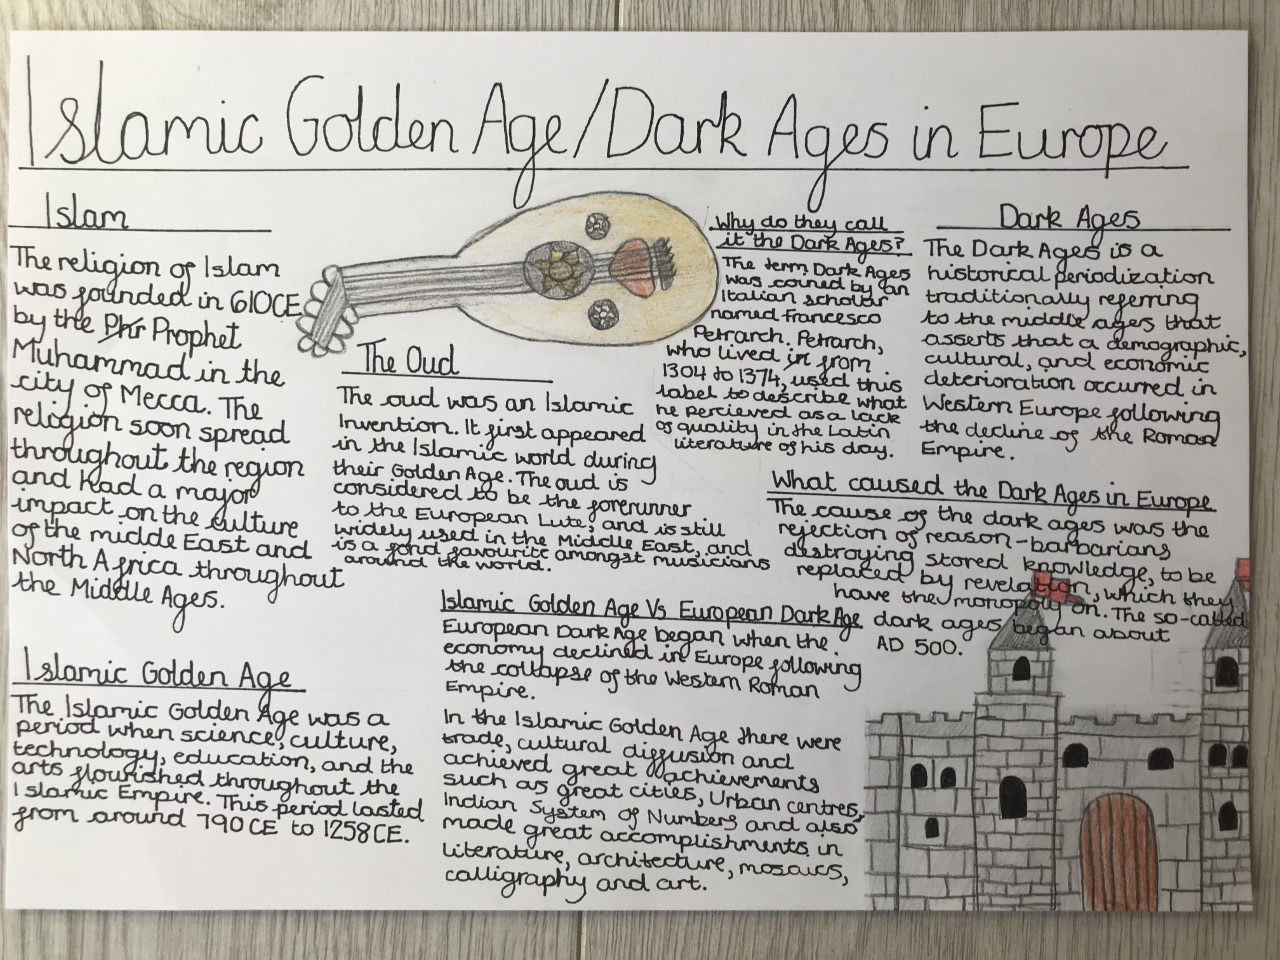 Islamic Golden Age/Dark Ages in Europe
Islam
The religion of Islam
was founded in 610CE
by the Phr Prophet
Muhammad in the
city of Mecca. The
religion soon spread
throughout the region
and had a major
impact on the culture
of the middle East and
North Africa throughout
the Middle Ages.
Islamic Golden Age
The Islamic Golden Age was a
period when science, culture,
technology, education, and the
arts flourished throughout the
Islamic Empire. This period lasted
from around 790CE to 1258CE.
The Oud
The oud was an Islamic
Invention. It first appeared
in the Islamic world during
their Golden Age. The oud is
considered to be the forerunner
to the European Lute; and is still
widely used in the Middle East, and
is a fond favourite amongst musicians
around the world.
Why do they call
it the Dark Ages?
The term Dark Ages
was coined by an
Italian scholar
named francesco
Petrarch. Petrarch,
who lived in from
1304 to 1374, used this
label to describe what
he percieved as a lack
of quality in the Latin
literature of his day.
Dark Ages
The Dark Ages is a
historical periodization
traditionally referring
to the middle ages that
asserts that a demographic,
cultural, and economic
deterioration occurred in
Western Europe following
the decline of the Roman
Empire.
What caused the Dark Ages in Europe
The cause of the dark ages was the
rejection of reason-barbarians
destroying stored knowledge, to be
replaced by revelation, which they
have the monopoly on. The so-called
dark ages began about
AD 500.
Islamic Golden Age Vs European Dark Age
European Dark Age began when the
economy declined in Europe following
the collapse of the Western Roman
Empire.
In the Islamic Golden Age there were
trade, cultural diffusion and
achieved great achievements
such as great cities, Urban centres,
Indian System of Numbers and also
made great accomplishments in
literature, architecture, mosaics,
calligraphy and art.